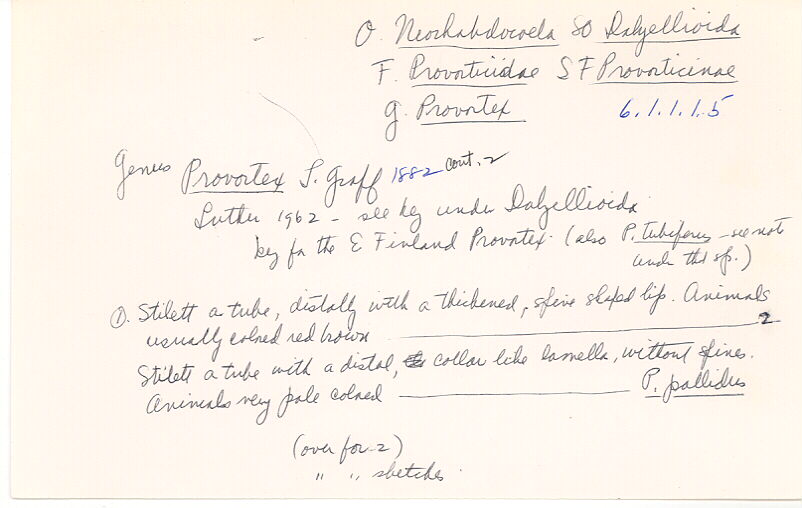 O. Neorhabdocoela SO Dalyellioida
F. Provorticidae SF Provorticinae
g. Provortex 6.1.1.1.5
Genus Provortex L. Graff 1882 cont. 2
Luther 1962 - see key under Dalyellioida
key for the E Finland Provortex (also P. tubiferus - see note
under that sp.)
①. Stilett a tube, distally with a thickened, spine shaped lip. Animals
usually colored red brown 2
Stilett a tube with a distal, collar like lamella, without spines.
Animals very pale colored P. pallidus
(over for 2)
" " sketches